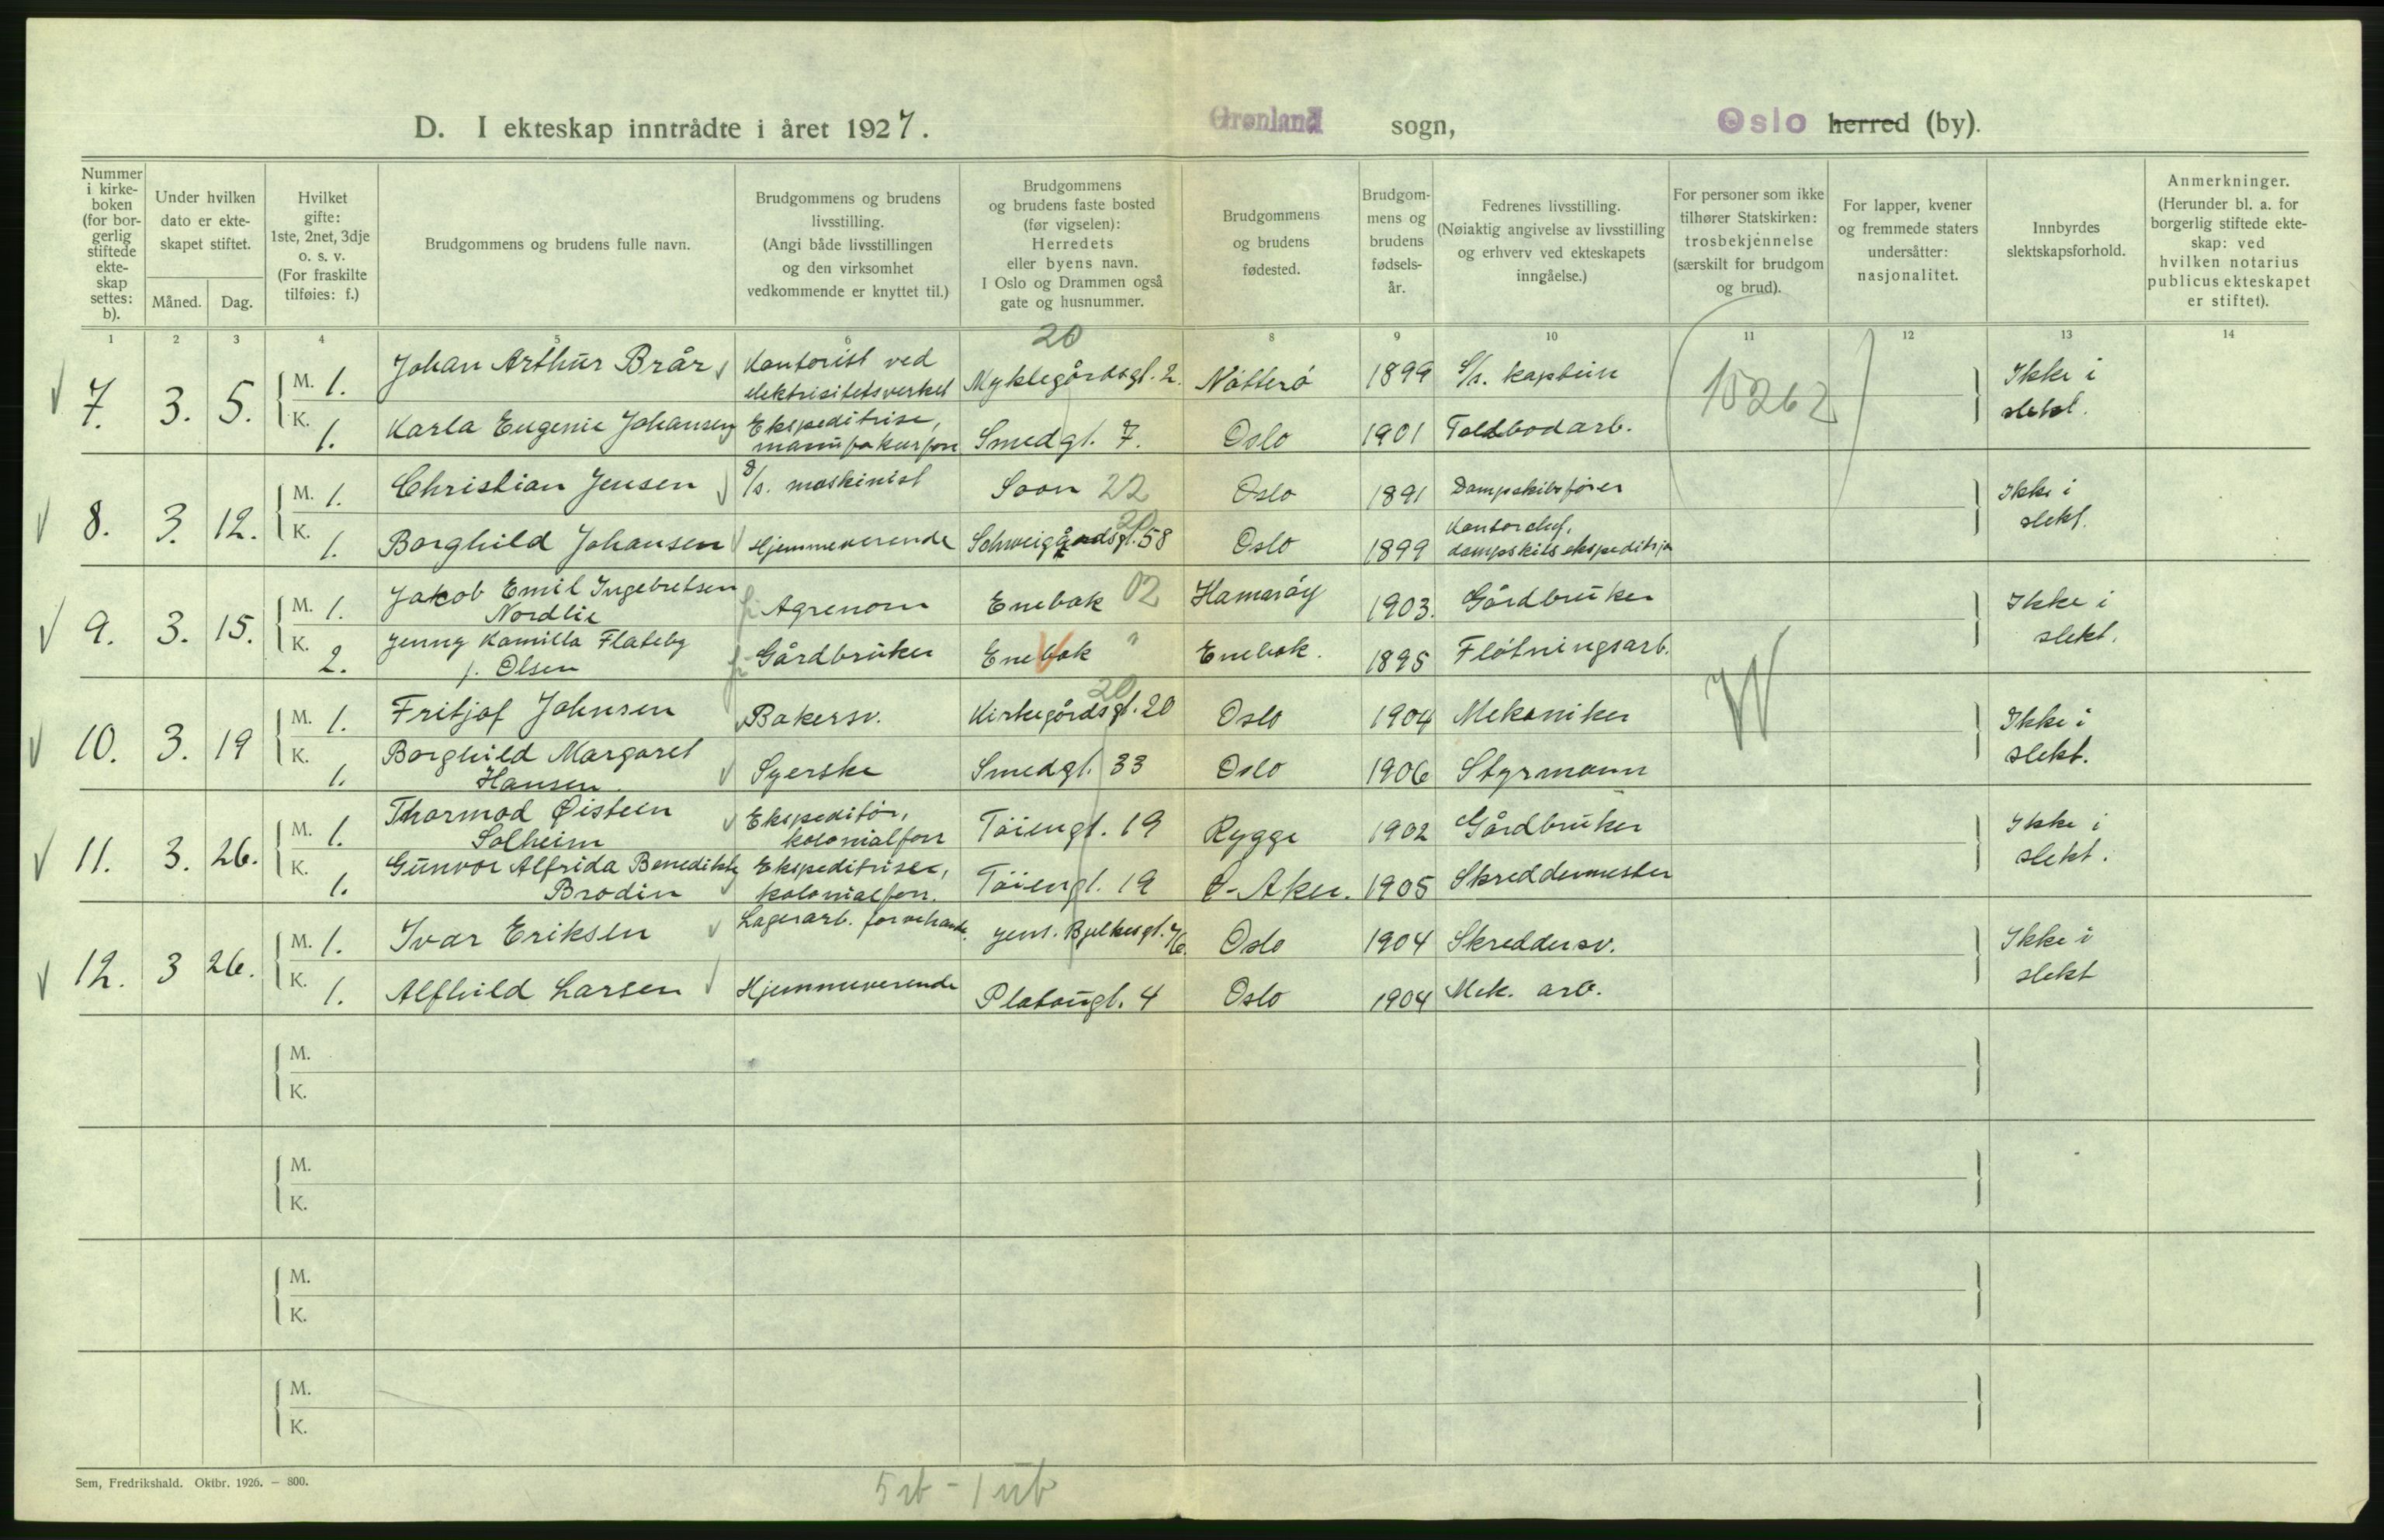 D. I ekteskap inntrådte i året 1927. Grønland sogn, Oslo herred (by).
Nummer i kirke-boken (for bor-gerlig stiftede ekte-skap settes: b).
Under hvilken dato er ekte-skapet stiftet.
Måned.
Dag.
Hvilket gifte: 1ste, 2net, 3dje o. s. v. (For fraskilte tilføies: f.)
Brudgommens og brudens fulle navn.
Brudgommens og brudens livsstilling. (Angi både livsstillingen og den virksomhet vedkommende er knyttet til.)
Brudgommens og brudens faste bosted (før vigselen): Herredets eller byens navn. I Oslo og Drammen også gate og husnummer.
Brudgommens og brudens fødested.
Brudgom-mens og brudens fødsels-år.
Fedrenes livsstilling. (Nøiaktig angivelse av livsstilling og erhverv ved ekteskapets inngåelse.)
For personer som ikke tilhører Statskirken: trosbekjennelse (særskilt for brudgom og brud).
For lapper, kvener og fremmede staters undersåtter: nasjonalitet.
Innbyrdes slektskapsforhold.
Anmerkninger. (Herunder bl. a. for borgerlig stiftede ekte-skap: ved hvilken notarius publicus ekteskapet er stiftet).
1 2 3 4 5 6 8 9 10 11 12 13 14
20
7. 3. 5. M. 1. Johan Arthur Brår Kontorist ved elektrisitetsverket Myklegårdsgt. 2. Nötterö 1899 S/s. kaptein 10262 Ikke i slekt.
K. 1. Karla Eugenie Johansen Ekspeditrise, manufakturforr Smedgt. 7. Oslo 1901 Toldbodarb.
8. 3. 12. M. 1. Christian Jensen S/s. maskinist Soon 22 Oslo 1891 Dampskibsfører Ikke i slekt.
K. 1. Borghild Johansen Hjemmeværende Schweigårdsgt. 58 20 Oslo 1899 Kontorchef, dampskibsekspedisjon
9. 3. 15. M. 1. Jakob Emil Ingebretsen Nordlie Agronom Enebak 02 Hamarøy 1903. Gårdbruker Ikke i slekt.
K. 2. Jenny Kamilla Flateby f. Olsen Gårdbruker Enebak " Enebak. 1895 Fløtningsarb.
10. 3. 19 M. 1. Fritjof Johnsen Bakersv. Kirkegårdsgt. 20 20 Oslo 1904 Mekaniker Ikke i slekt.
K. 1. Borghild Margaret Hansen Syerske Smedgt. 33 Oslo 1906 Styrmann
11. 3. 26. M. 1. Thormod Øisteen Solheim Ekspeditör, kolonialforr Töiengt. 19 Rygge 1902 Gårdbruker Ikke i slekt.
K. 1. Gunvor Alfrida Benedikte Brodin Ekspeditrise, kolonialforr. Töiengt. 19 Ø-Aker. 1905 Skreddermester
12. 3 26. M. 1. Ivar Eriksen Lagerarb. Jens Bjelkesgt. 76. Oslo 1904 Skreddersv. Ikke i slekt
K. 1. Alfhild Larsen Hjemmeværende Platougt. 4 Oslo 1904 Mek. arb.
M.
K.
M.
K.
M.
K.
M.
K.
Sem, Fredrikshald. Oktbr. 1926. — 800.
5 ub - 1 ub